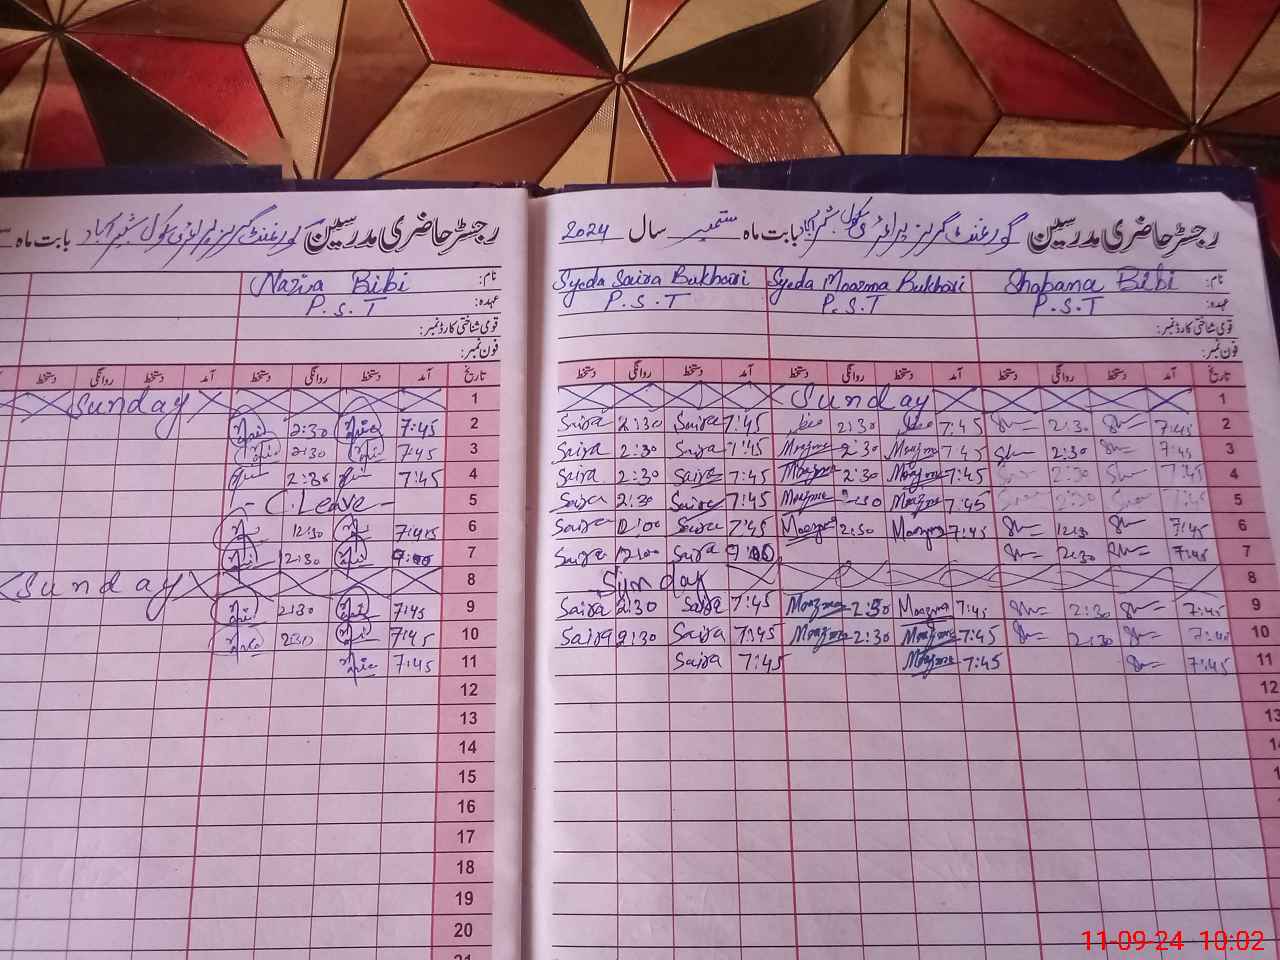 رجسٹر حاضری مدرسین گورنمنٹ گرلز پرائمری سکول بابت ماہ ستمبر سال 2024
نام: Shabana Bibi Syeda Moazma Bukhari Syeda Saira Bukhari
عہدہ: P.S.T P.S.T P.S.T
قومی شناختی کارڈ نمبر:
فون نمبر:
تاریخ آمد دستخط روانگی دستخط آمد دستخط روانگی دستخط آمد دستخط روانگی دستخط
1 Sunday
2 7:45 2:30 7:45 2:30 7:45 Saira 2:30 Saira
3 7:45 2:30 7:45 Moazma 2:30 Moazma 7:45 Saira 2:30 Saira
4 7:45 2:30 7:45 Moazma 2:30 Moazma 7:45 Saira 2:30 Saira
5 7:45 2:30 7:45 Moazma 2:30 Moazma 7:45 Saira 2:30 Saira
6 7:45 12:30 7:45 Moazma 2:30 Moazma 7:45 Saira 12:00 Saira
7 7:45 2:30 Saira 12:00 Saira
8 Sunday
9 7:45 2:30 7:45 Moazma 2:30 Moazma 7:45 Saira 2:30 Saira
10 7:45 2:30 7:45 Moazma 2:30 Moazma 7:45 Saira 2:30 Saira
11 7:45 7:45 Moazma 7:45 Saira
12
13
رجسٹر حاضری مدرسین گورنمنٹ گرلز پرائمری سکول بابت ماہ
نام: Nazira Bibi
عہدہ: P.S.T
قومی شناختی کارڈ نمبر:
فون نمبر:
تاریخ آمد دستخط روانگی دستخط آمد دستخط روانگی دستخط
1 Sunday
2 7:45 2:30
3 7:45 2:30
4 7:45 2:30
5 - C.Leave -
6 7:45 12:30
7 12:30
8 Sunday
9 7:45 2:30
10 7:45 2:30
11 7:45
12
13
14
15
16
17
18
19
20
21
11-09-24 10:02